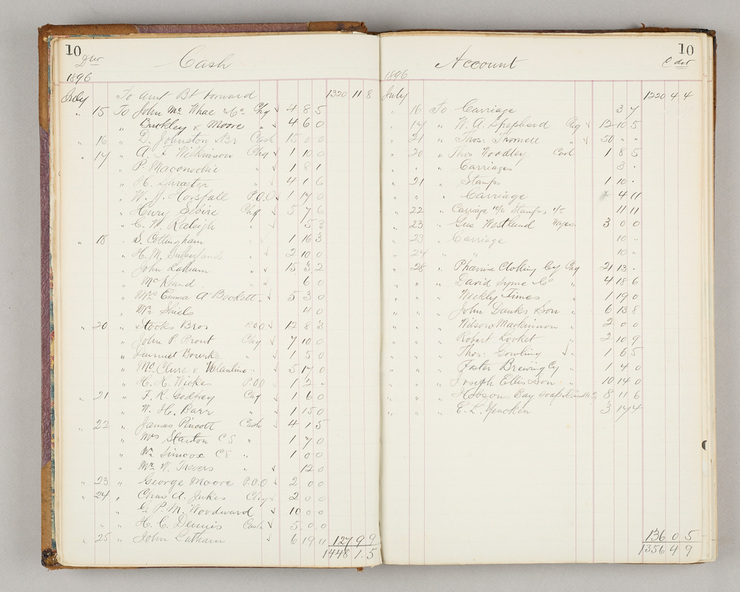 10
Cash
1896
July To Amt Bt forward 1320 11 8
15 To John Mc Whae & Co Chq 4 8 5
" Buckley & Moore " 4 6 0
16 " D. Johnston Cash 15
17 " A. Wilkinson Chq 1 10 0
" P. Maconochie " 1 8 1
" H. " 4 1 6
" W. J. Horsfall P.O.O 1 17 0
" Henry Chq 5 7 6
" C. W. Raleigh " 5 3
18 " D. Cottingham 1 16 3
" H. M. " 2 10 0
" John Latham " 15 3 2
" Mc 6 0
" Mrs Emma A Beckett 5 3 0
" Mr Shiels
20 " Stooks Bros P.O.O 12 8 3
" John P Prout Chq 7 10 0
" Samuel 1 5 0
" McClure & Valantine 5 17 0
" H. R. Wickes P.O.O 1 2 -
21 " F. R. Godfrey Chq 1 6 0
" W. H. Barr " 1 15 0
22 " James Pincott Cash 4 1 5
" Mrs Stanton C S " 1 7 0
" Wm C S " 1 0 0
" Mr W. " 12 0
23 " George Moore P.O.O 2 0 0
24 " Chas A. Jukes Chq 2 0 0
" G. P. M. Woodward " 10 0 0
" H. C. Dennis Cash 5 0 0
25 " John Latham " 6 19 11 127 9 9
1448 1 5
10
Account
1896
July 1220 4 4
16 To Carriage 3 7
17 " W. A. Shepherd Chq 12 10 5
21 " Thos. " 20 - -
20 " Thos Woodley Cash 1 8 5
" Carriage 3 -
21 " Stamps 1 10 -
" Carriage 4 11
22 " Carriage Stamps 11 11
23 " Geo Westland Wages 3 0 0
23 " Carriage 10 -
24 " " 10 -
28 " Phoenix Clothing Coy Chq 21 13 -
" David Syme & Co " 4 18 6
" Weekly Times " 1 19 0
" John Danks & Son " 6 13 8
" Wilson & Mackinnon " 2 0 0
" Robert Lochet " 2 10 9
" Thos. Gowling " 1 6 5
" Foster Brewing Coy " 1 4 0
" Joseph Ellis & Son " 10 14 0
" Hobson Bay Soap & Candle Co 8 11 6
" E. L. Yencken 3 17 4
136 0 5
1356 4 9